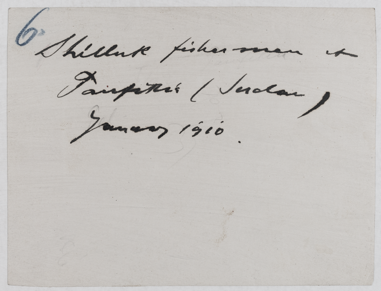 6.
Shilluk fishermen at
Taufikia (Sudan)
January 1910.